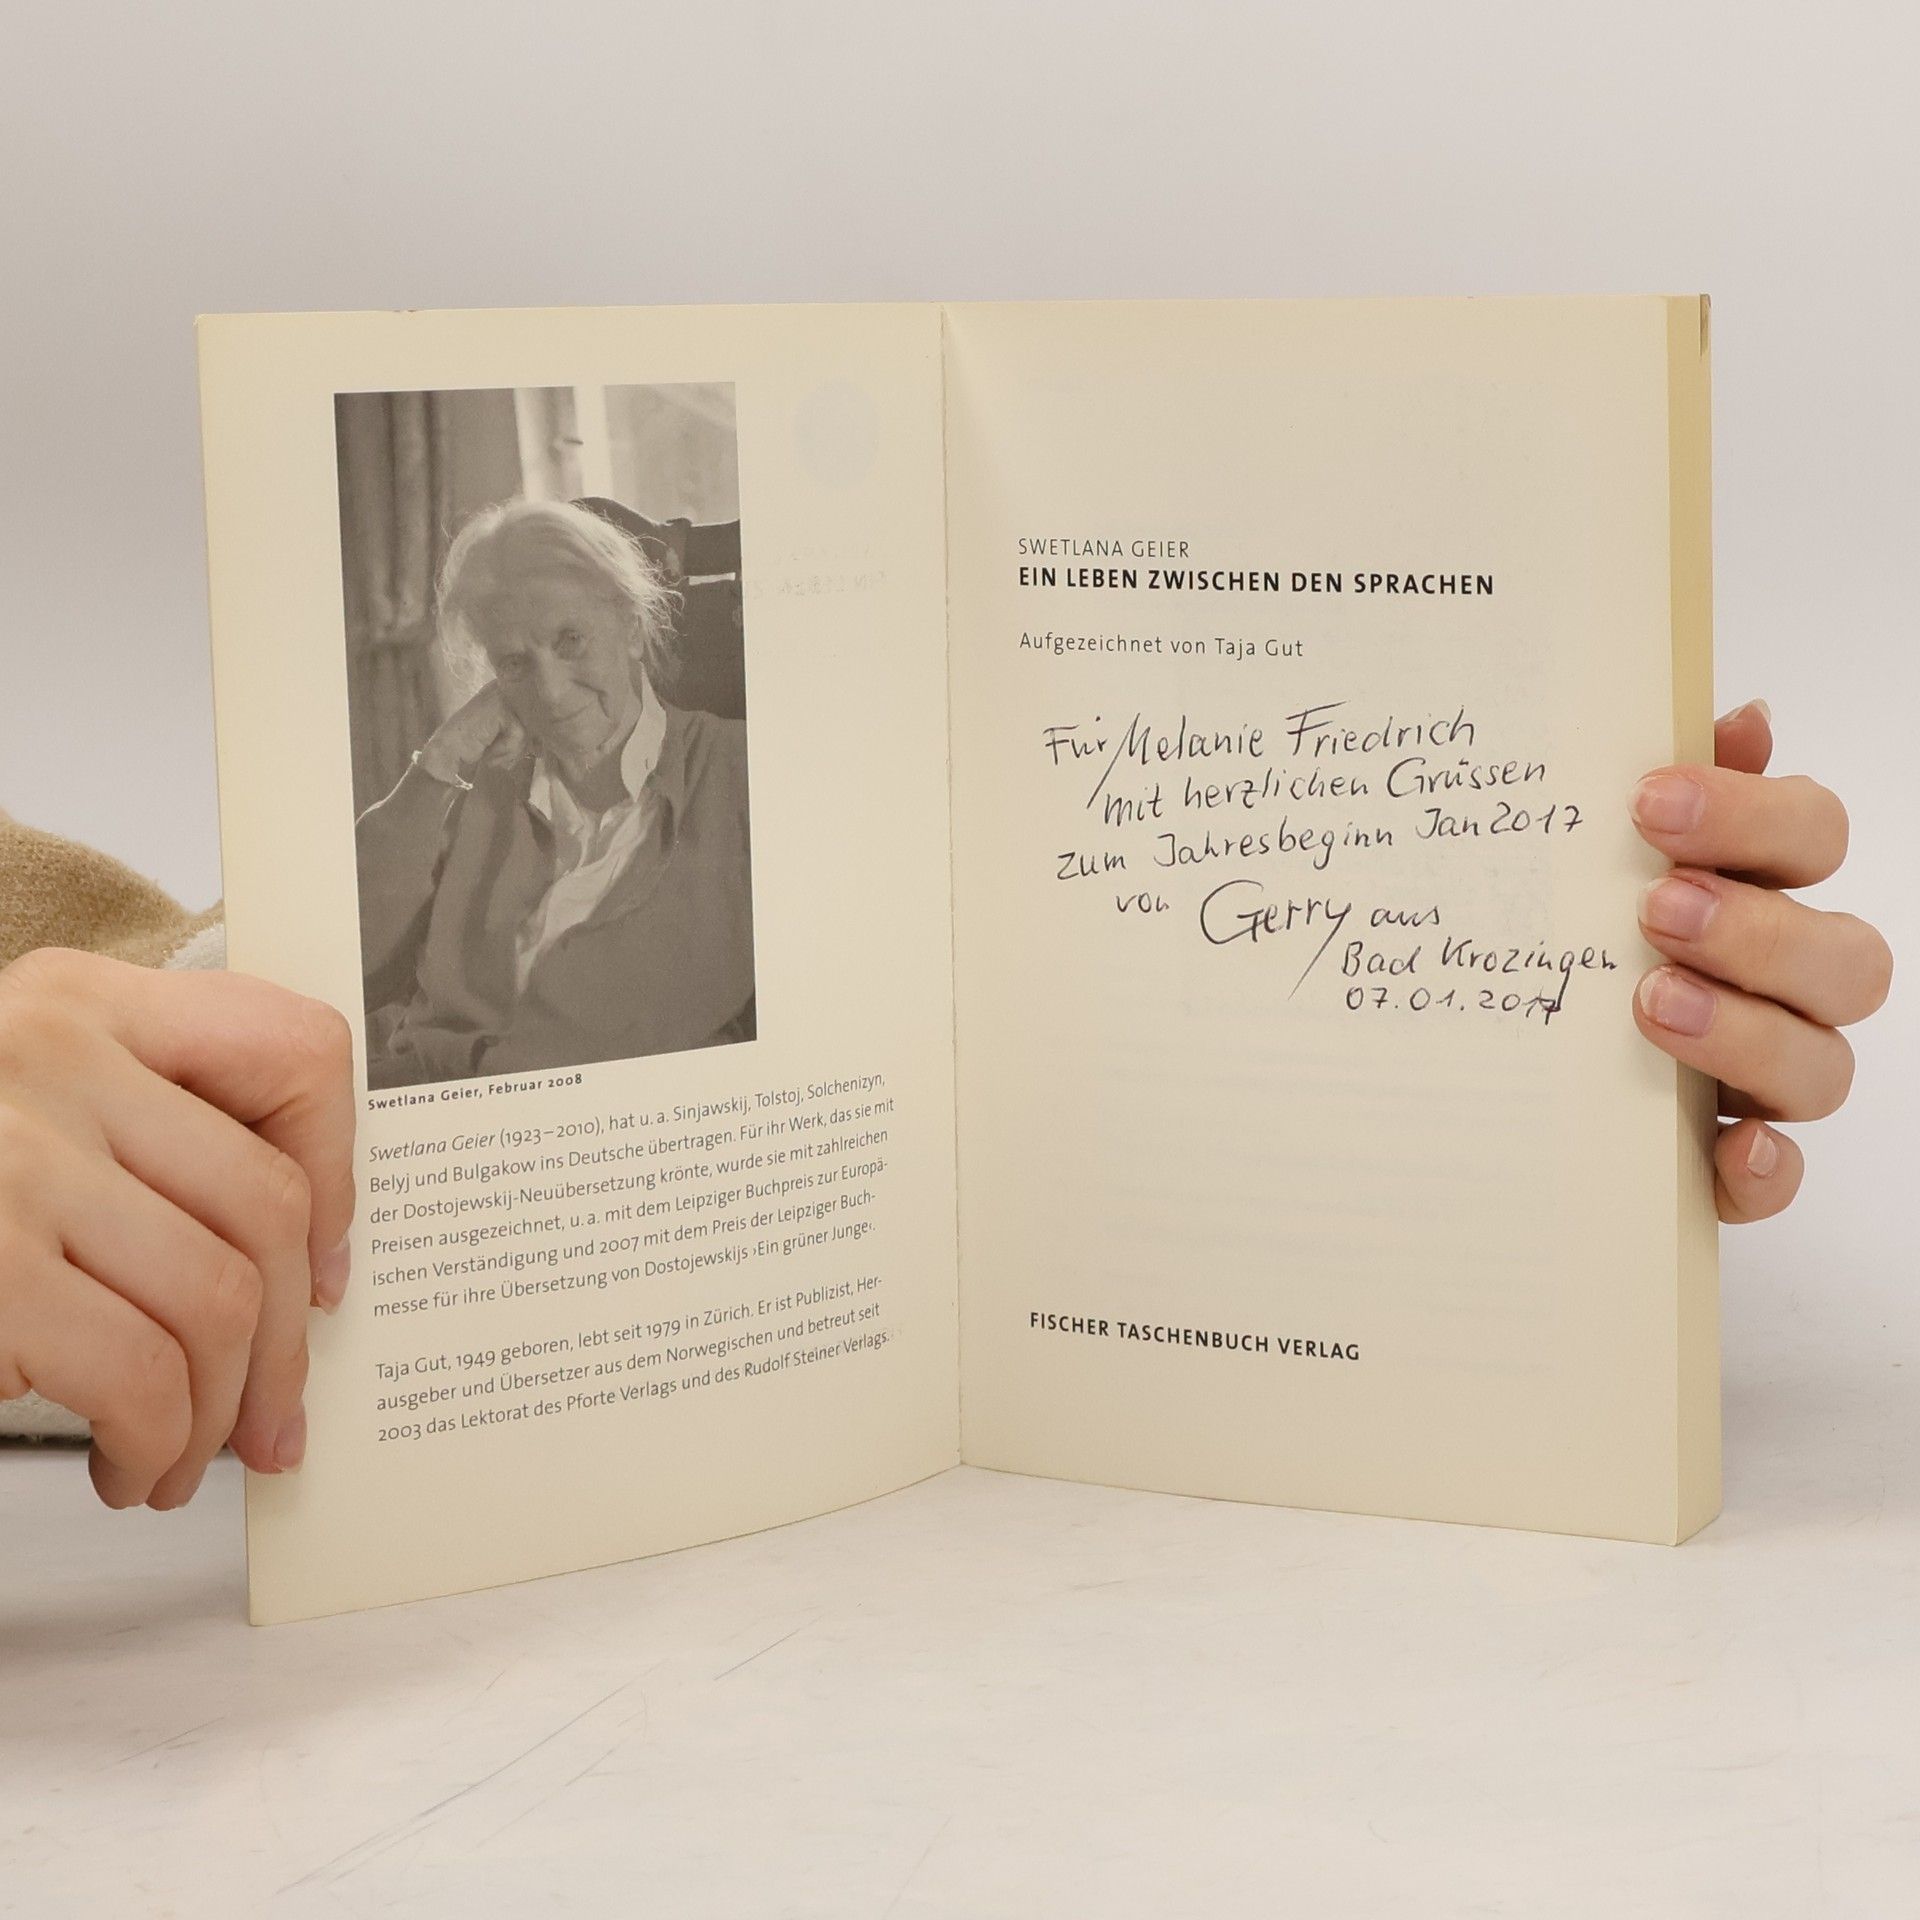 Swetlana Geier, Februar 2008
Swetlana Geier (1923–2010), hat u. a. Sinjawskij, Tolstoj, Solchenizyn,
Belyj und Bulgakow ins Deutsche übertragen. Für ihr Werk, das sie mit
der Dostojewskij-Neuübersetzung krönte, wurde sie mit zahlreichen
Preisen ausgezeichnet, u. a. mit dem Leipziger Buchpreis zur Europä-
ischen Verständigung und 2007 mit dem Preis der Leipziger Buch-
messe für ihre Übersetzung von Dostojewskijs ›Ein grüner Junge‹.
Taja Gut, 1949 geboren, lebt seit 1979 in Zürich. Er ist Publizist, Her-
ausgeber und Übersetzer aus dem Norwegischen und betreut seit
2003 das Lektorat des Pforte Verlags und des Rudolf Steiner Verlags.
SWETLANA GEIER
EIN LEBEN ZWISCHEN DEN SPRACHEN
Aufgezeichnet von Taja Gut
Für Melanie Friedrich
mit herzlichen Grüssen
zum Jahresbeginn Jan 2017
von Gerry aus
Bad Krozingen
07.01.2017
FISCHER TASCHENBUCH VERLAG